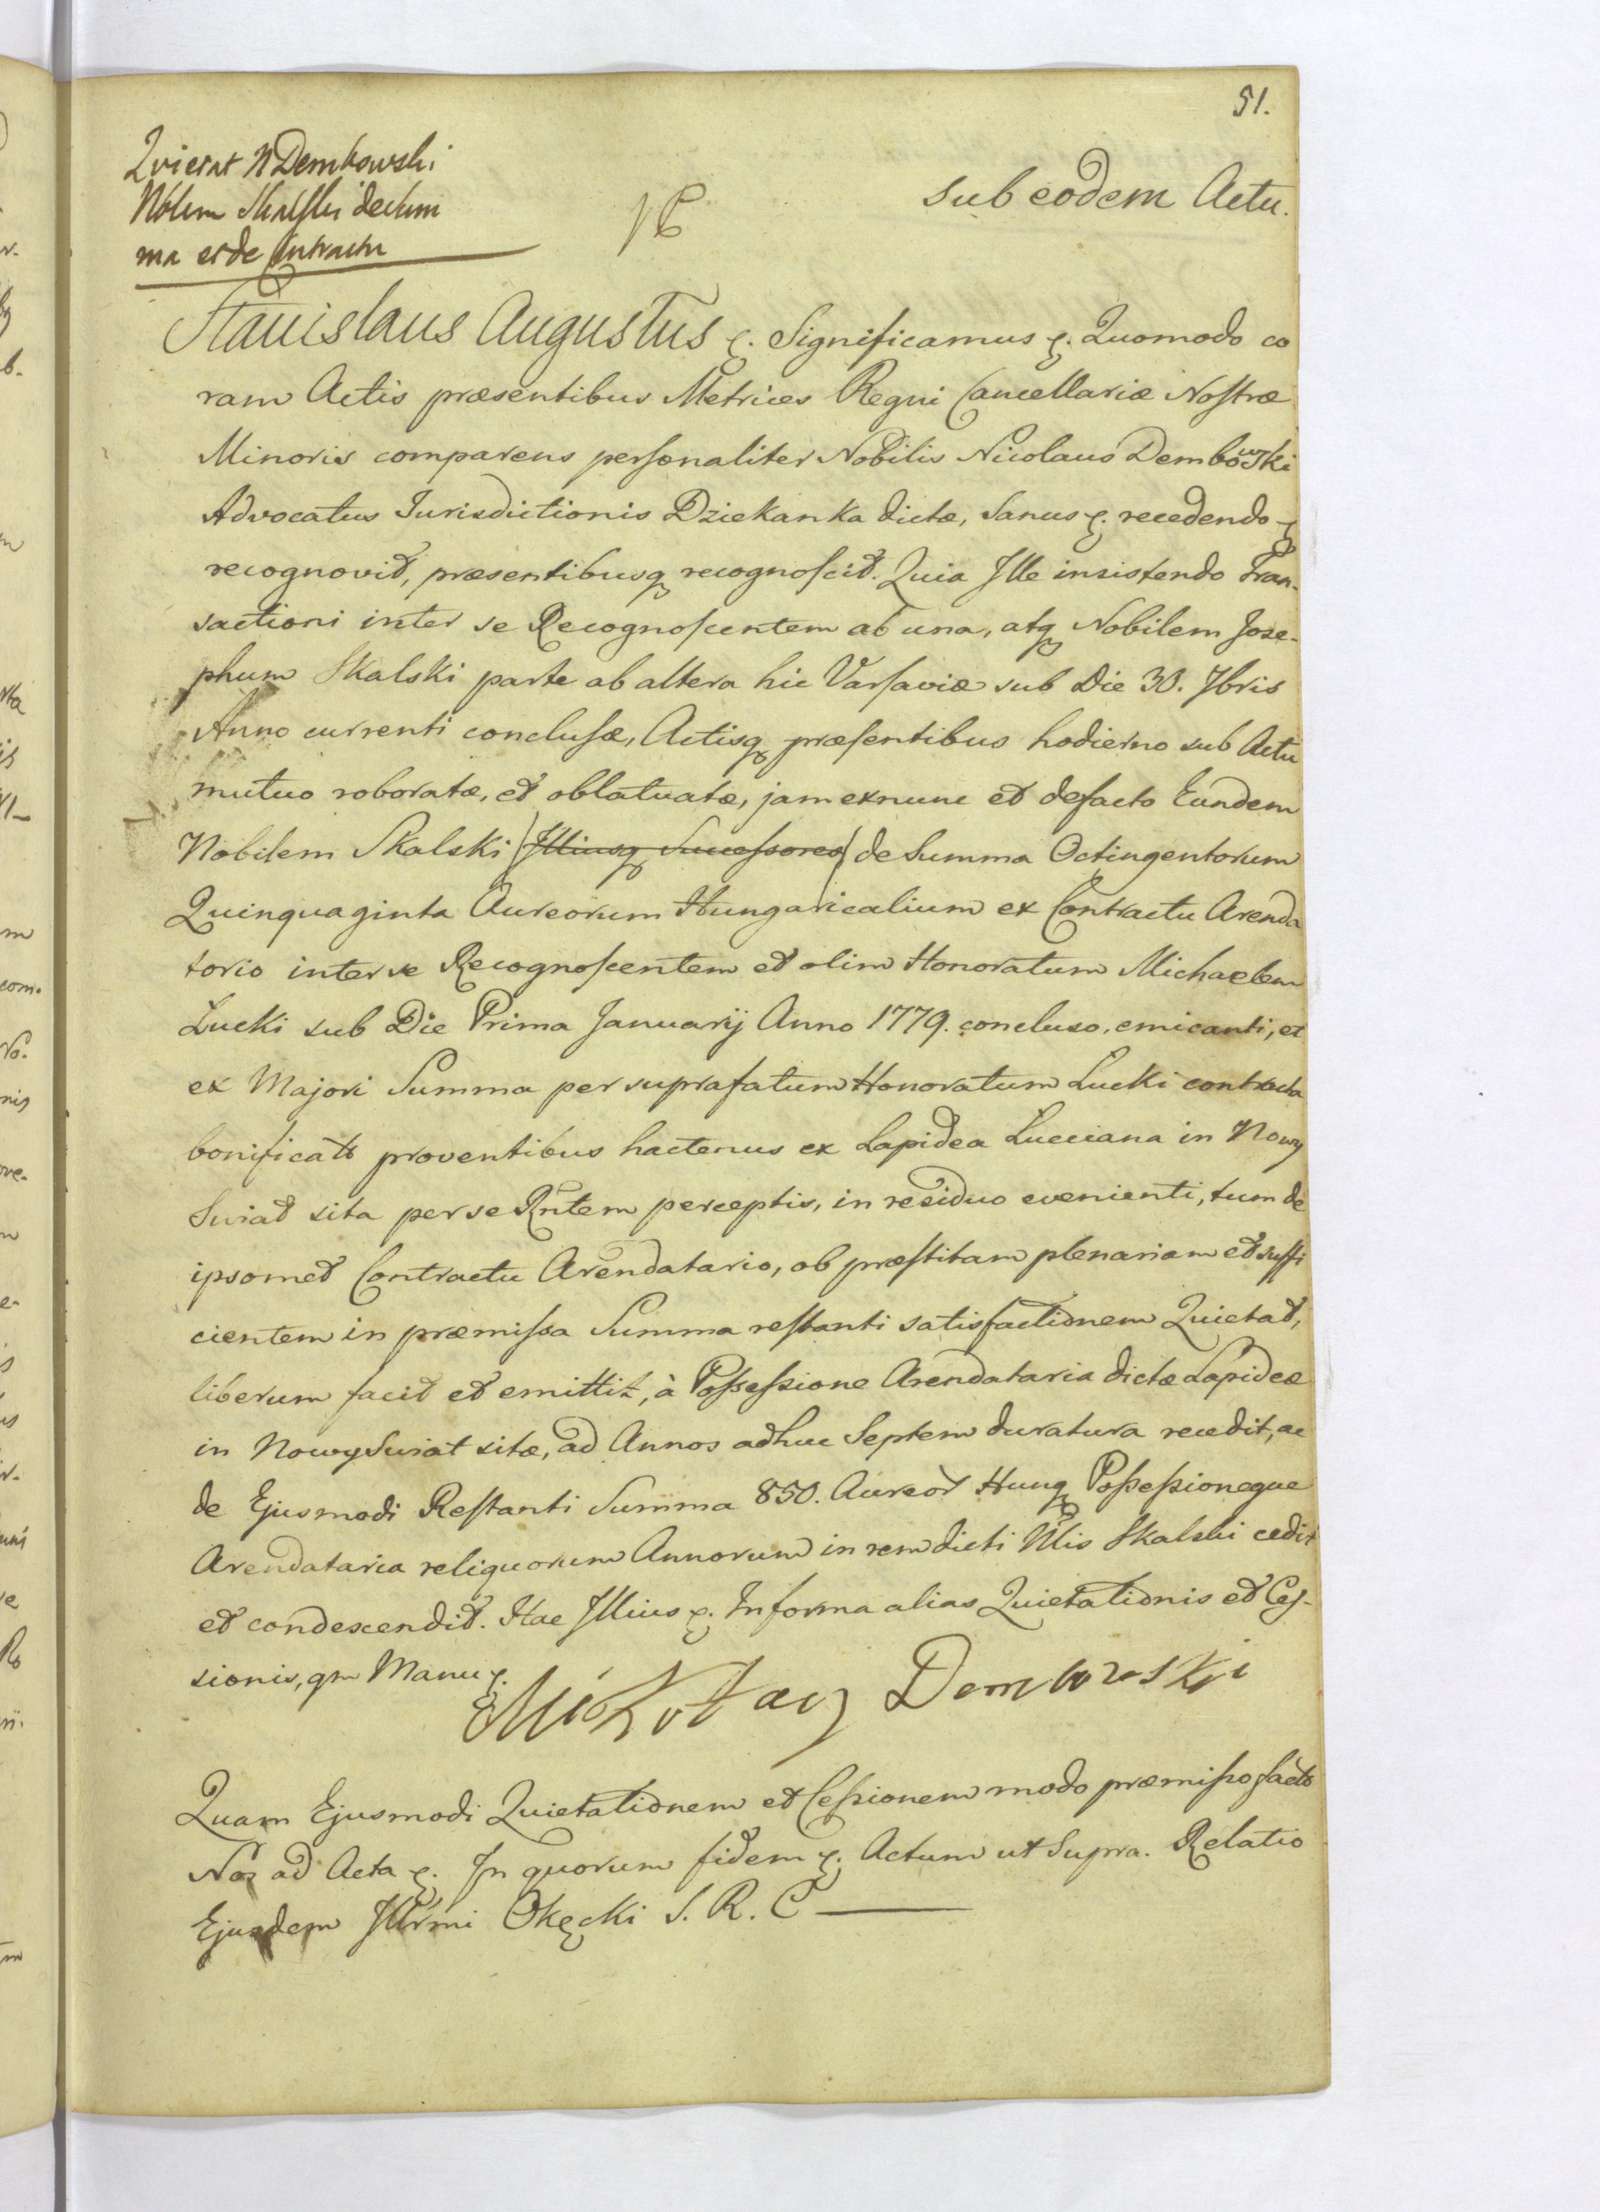 51.
Qvietat N Dembowski
Nblem Skalski de Sum
ma et de Contractu
sub eodem Actu.
Stanislaus Augustus ꝛ. Significamus ꝛ. Quomodo co
ram Actis præsentibus Metrices Regni Cancellariæ Nostræ
Minoris comparens personaliter Nobilis Nicolaus Dembowski
Advocatus Jurisdictionis Dziekanka dictæ, Sanus ꝛ. recedendo ꝛ
recognovit, præsentibusq recognoscit. Quia Ille insistendo Tran-
sactioni inter se Recognoscentem ab una, atq Nobilem Jose-
phum Skalski parte ab altera hic Varsaviæ sub Die 30. 7bris
Anno currenti conclusæ, Actisq præsentibus hodierno sub Actu
mutuo roboratæ, et oblatuatæ, jam exnunc et defacto Eundem
Nobilem Skalski (Illiusq Successores) de Summa Octingentorum
Quinquaginta Aureorum Hungaricalium ex Contractu Arenda
torio inter se Recognoscentem et olim Honoratum Michaelem
Lucki sub Die Prima Januarij Anno 1779. concluso, emicanti, et
ex Majori Summa per suprafatum Honoratum Lucki contracta
bonificatis proventibus hactenus ex Lapidea Lucciana in Nowy
Swiat sita per se Rntem perceptis, in residuo evenienti, tum de
ipsomet Contractu Arendatario, ob præstitam plenariam et suffi
cientem in præmissa Summa restanti satisfactionem Quietat,
liberum facit et emittit, à Possessione Arendataria dictæ Lapideæ
in Nowy Swiat sitæ, ad Annos adhuc Septem duratura recedit, ac
de Ejusmodi Restanti Summa 850. Aureor Hung Possessioneque
Arendataria reliquorum Annorum in rem dicti Nlis Skalski cedit
et condescendit. Hac Illius ꝛ. In forma alias Quietationis et Ces-
sionis, qm Manu ꝛ.
Mikołay Dembowski
Quam Ejusmodi Quietationem et Cessionem modo præmisso facto
Nos ad Acta ꝛ. In quorum fidem ꝛ. Actum ut Supra. Relatio
Ejusdem Illrmi Okęcki S. R. C